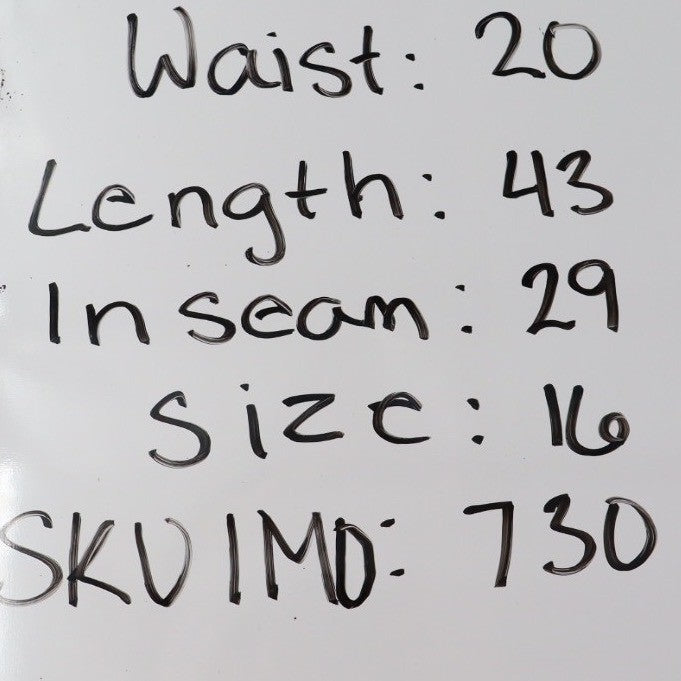 Waist: 20
Length: 43
Inseam: 29
Size: 16
SKU IMD: 730